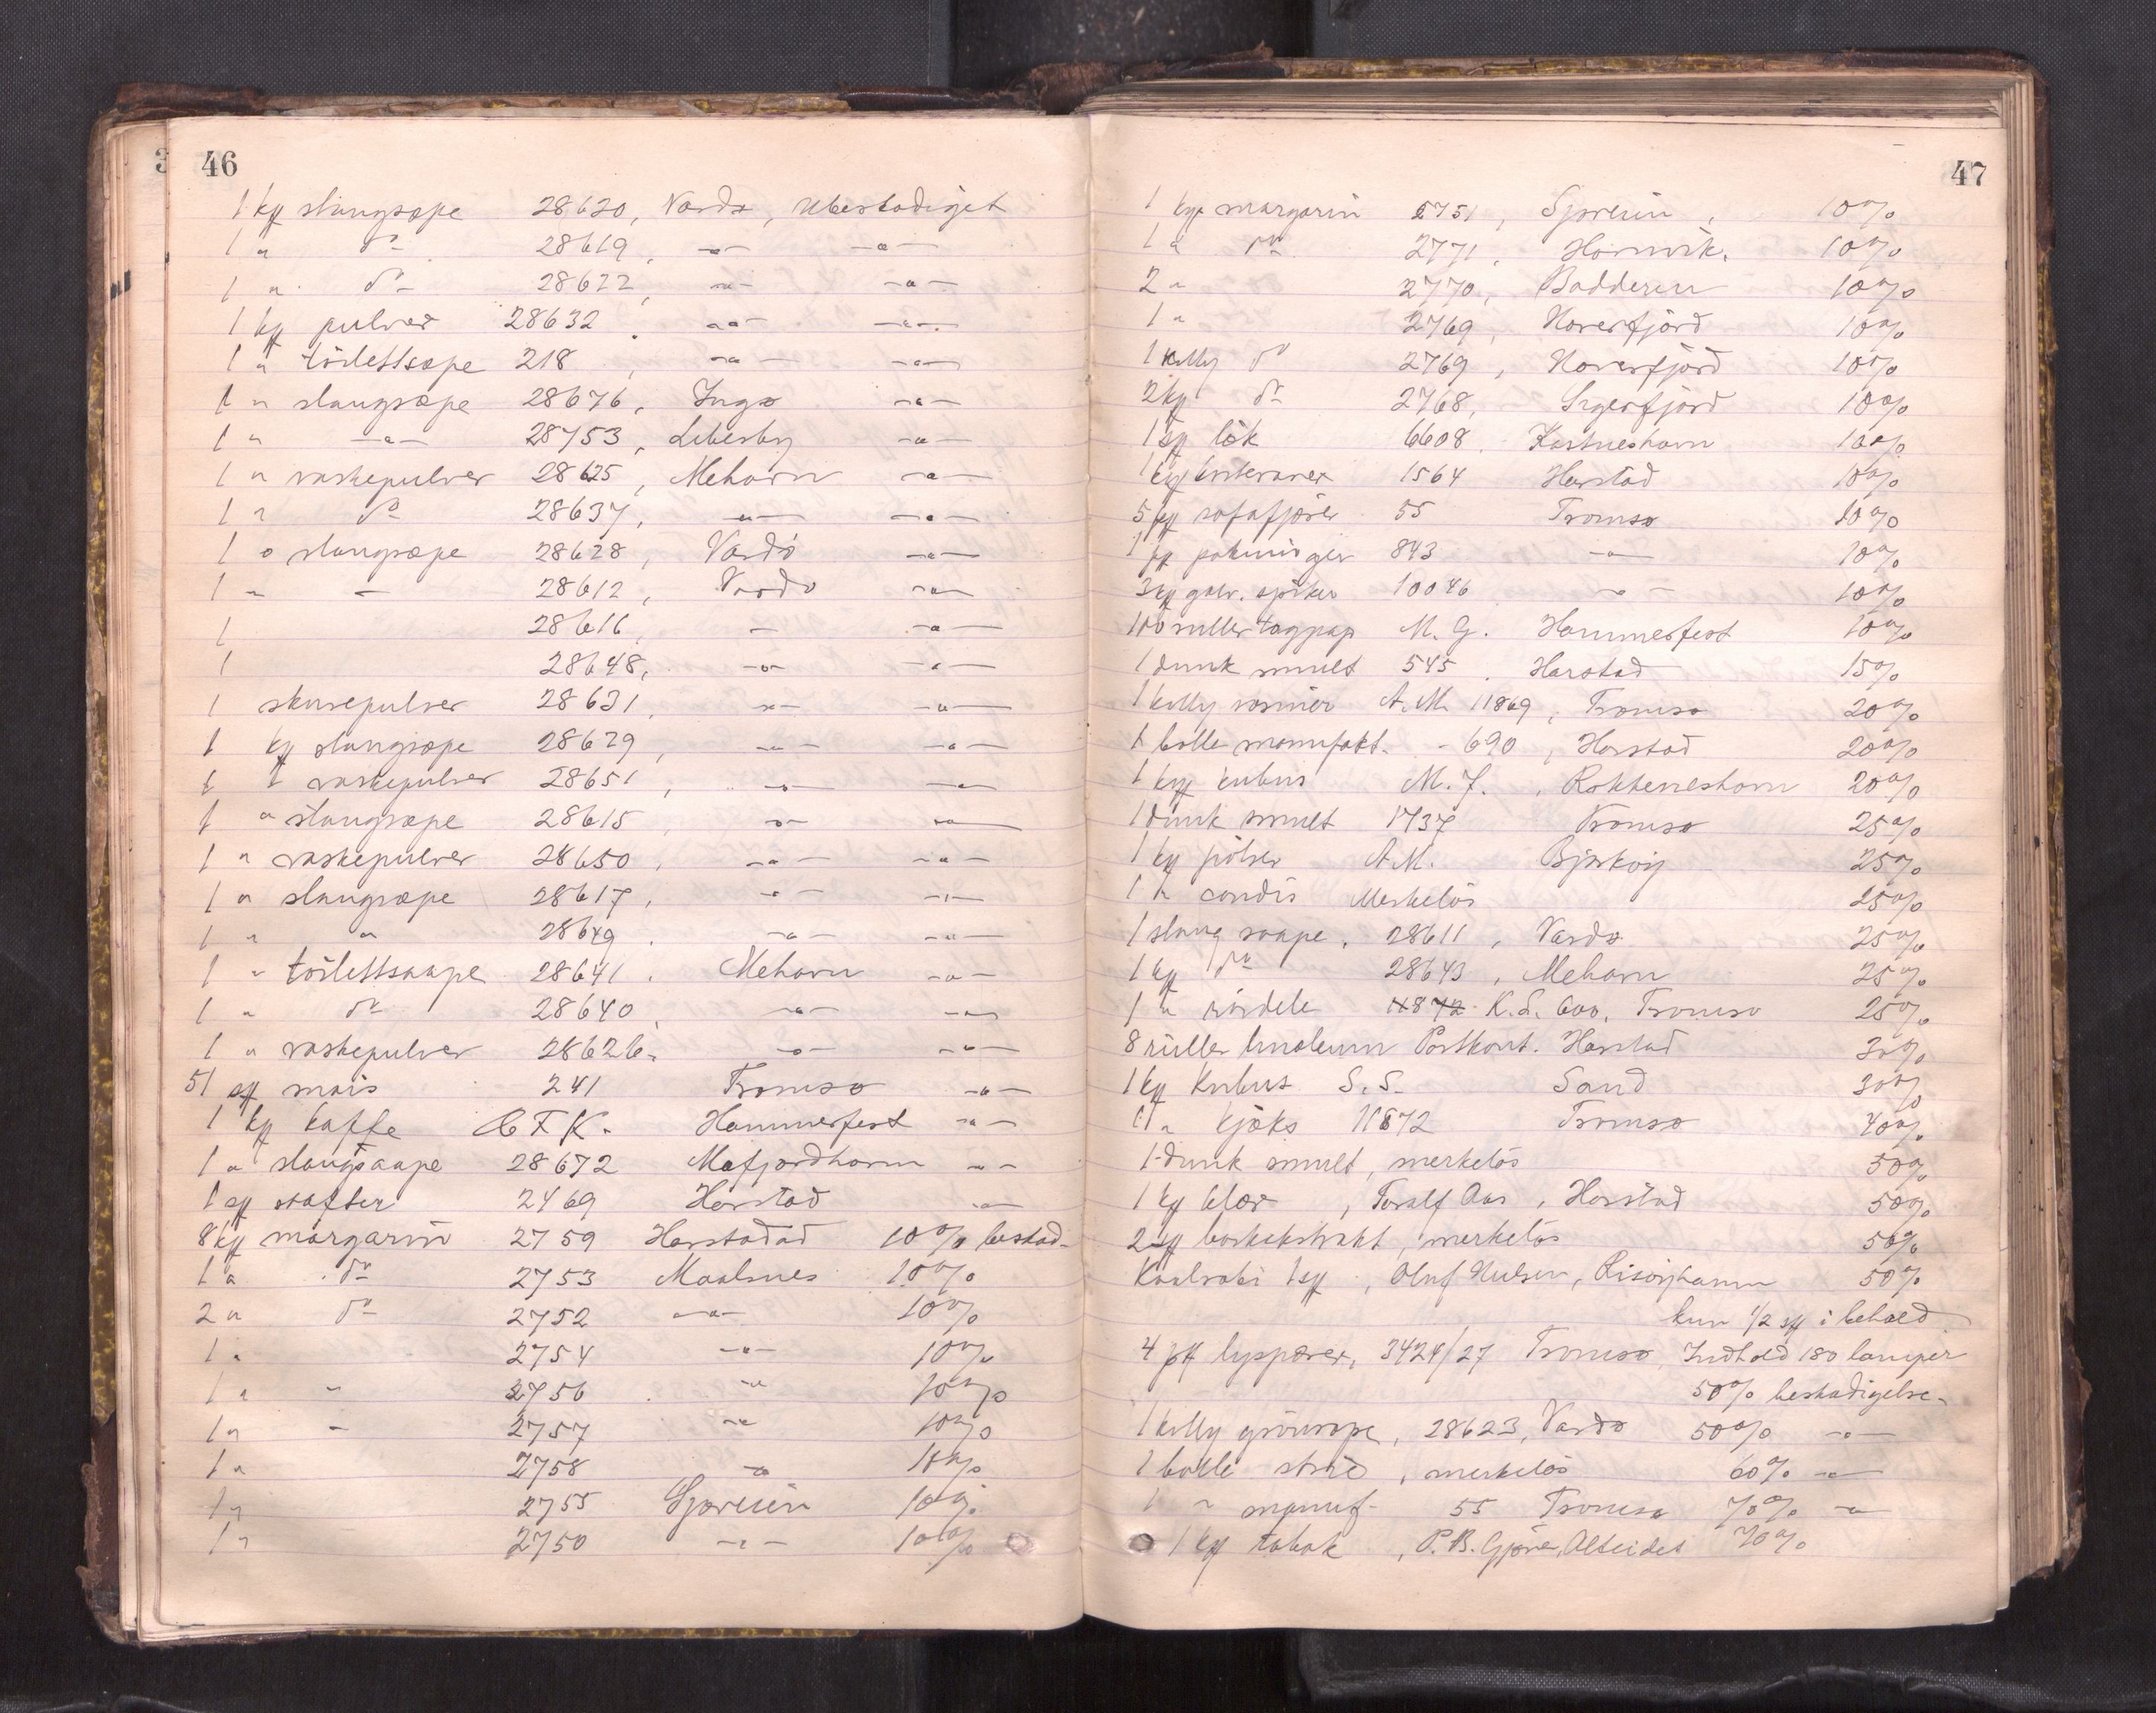 46
1 kff stangsæpe 28620, Vardø, Ubeskadiget
1 " do 28619, -"- -"-
1 " do 28622, -"- -"-
1 kff pulver 28632, -"- -"-
1 " toilettsæpe 218, -"- -"-
1 " stangsæpe 28676, Ingø -"-
1 " -"- 28753, Lebesby -"-
1 " vaskepulver 28625, Mehavn -"-
1 " do 28637, -"- -"-
1 " stangsæpe 28628, Vardö -"-
1 " - 28612, Vardö -"-
1 28616, - -"-
1 28648, -"- -"-
1 skurepulver 28631, -"- -"-
1 kff stangsæpe 28629, -"- -"-
1 " vaskepulver 28651, -"- -"-
1 " stangsæpe 28615, -"- -"-
1 " vaskepulver 28650, -"- -"-
1 " stangsæpe 28617, -"- -"-
1 " " 28649, -"- -"-
1 " toilettsaape 28641, Mehavn -"-
1 " do 28640, -"- -"-
1 " vaskepulver 28626, -"- -"-
51 sff mais 241 Tromsø -"-
1 kff kaffe C F K. Hammerfest -"-
1 " stangsaape 28672 Mefjordhavn -"-
1 sff stafter 2469 Harstad -"-
8 kff margarin 2759 Harstadad 10% beskad-
1 " do 2753 Maalsnes 10%
2 " do 2752 -"- 10%
1 " 2754 -"- 10%
1 " - 2756 -"- 10%
1 " - 2757 -"- 10%
1 " 2758 -"- 10%
1 " 2755 Sjøreien 10%
1 " 2750 -"- 10%
47
1 kff margarin 2751, Sjøreien, 10%
1 " do 2771, Havnvik, 10%
2 " 2770, Badderen 10%
1 " 2769, Kovерfjord 10%
1 kolly do 2769, Kovерfjord 10%
2 kff do 2768, Sigerfjord 10%
1 sff løk 6608 Kastneshavn 10%
1 kff 1564 Harstad 10%
5 kff sofafjærer 55 Tromsø 10%
1 kff pakninger 843 -"- 10%
3 kff galv. spiker 10046 -"- 10%
100 ruller tagpap M. G. Hammerfest 10%
1 dunk smult 545. Harstad 15%
1 kolly rosiner A. M. 11869, Tromsø 20%
1 balle manufakt. - 690, Harstad 20%
1 kff kubus M. J., Rokkeneshavn 20%
1 dunk smult 1737 Tromsø 25%
1 kff pölser A M. Bjarköy 25%
1 " candis Merkelös 25%
1 stang saape, 28611, Vardø 25%
1 kff do 28643, Mehavn 25%
1 " rördele 11872 K. L. 600, Tromsø 25%
8 ruller linoleum Postkont. Harstad 30%
1 kff Kubus S. S. Sand 30%
1 " kjæks 11872 Tromsø 40%
1 dunk smult, merkelös 50%
1 kff klær, Toralf Aas, Harstad 50%
2 sff barkekstrakt, merkelös 50%
Kaalrabi 1 sff, Oluf Nielsen, Risöyhamn 50%
kun 1/2 sff i behold
4 kff lyspærer, 3424/27 Tromsø, Indhold 180 lamper
50% beskadigelse-
1 kolly grönsæpe, 28623, Vardø 50% -"-
1 balle strie, merkelös 60% -"-
1 " manuf- 55 Tromsø 70% -"-
1 kff tobak, P. B. Gjæver, Alteidet 70%